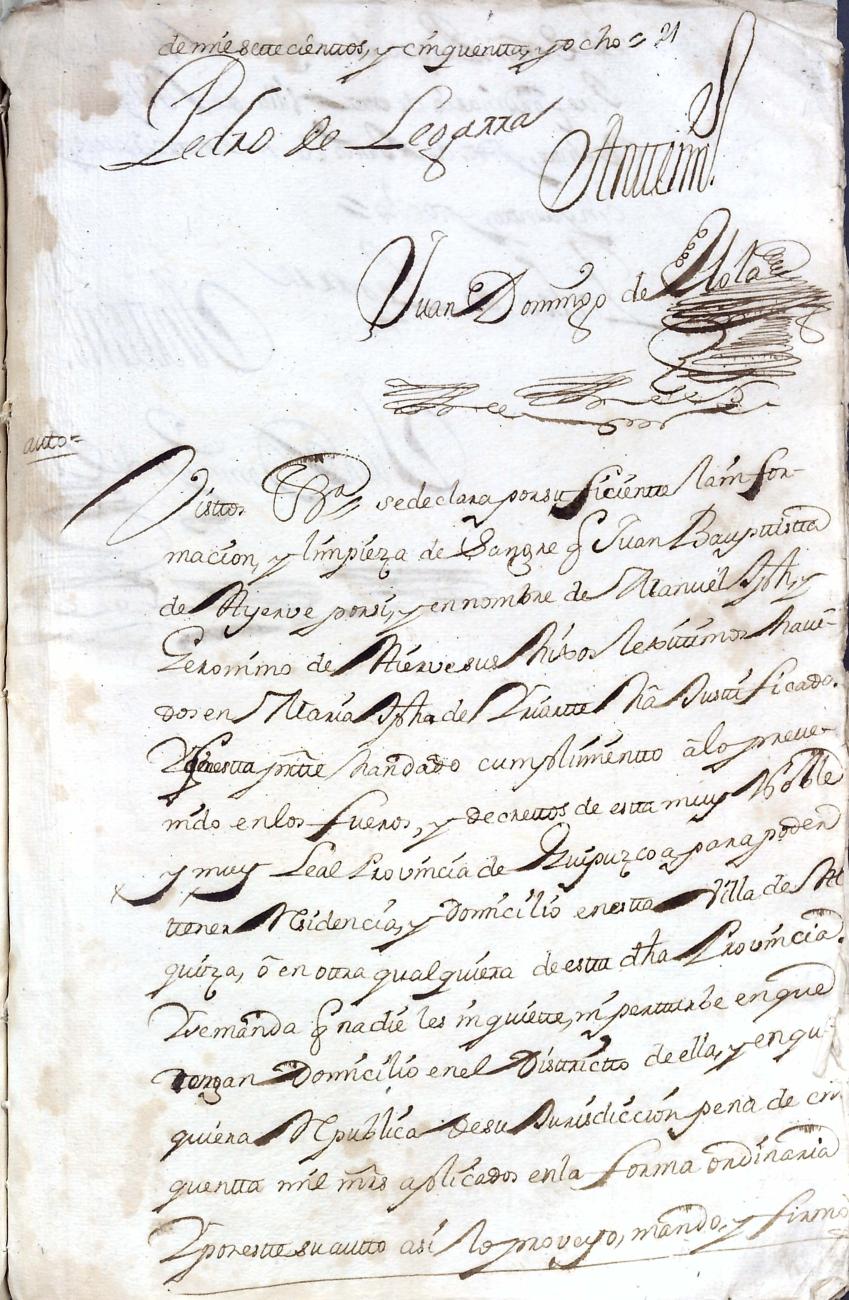 de mil settecienttos, y cinquentta y ocho = 21
Pedro de Legarra
Antemi
Juan Domingo de Olola
auto=
Visttos se declara por suficientte la infor-
macion, y limpieza de Sangre q Juan Bauptistta
de Ayerve por si, y en nombre de Manuel Jph, y
Geronimo de Aierve sus hixos lexitimos havi-
dos en Maria Jpha de Yriartte hâ Justificado.
Y q en estta ptte han dado cumplimientto â lo preve-
nido en los fueros, y decrettos de estta muy Noble
y muy Leal Provincia de Guipuzcoa, para poder
ttener Residencia, y Domicilio en estta Villa de Al
quiza, ô en otra qualquiera de estta dha Provincia.
Y e manda q nadie les inquiette, ni pertturbe en que
tengan Domicilio en el Disttrictto de ella, y en qu-
quiera Republica de su Jurisdiccion pena de cin
quentta mil mrs aplicados en la forma ordinaria
Y por estte su autto asi lo proveyo, mando, y firmô